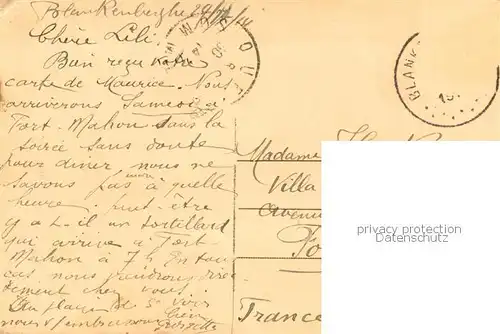 Blankenberghe
Chère Lili
Bien reçu votre
carte de Maurice. Nous
arriverons Samedi à
Fort-Mahon dans la
soirée sans doute
pour diner nous ne
savons pas à quelle
heure, peut-être
y a-t-il un tortillard
qui arrive à Fort
Mahon à 7h En tou
cas nous viendrons direc
tement chez vous.
Au plaisir de vous
nous embrassons
BLANK
Madame
Villa
Avenue
France
privacy protection
Datenschutz